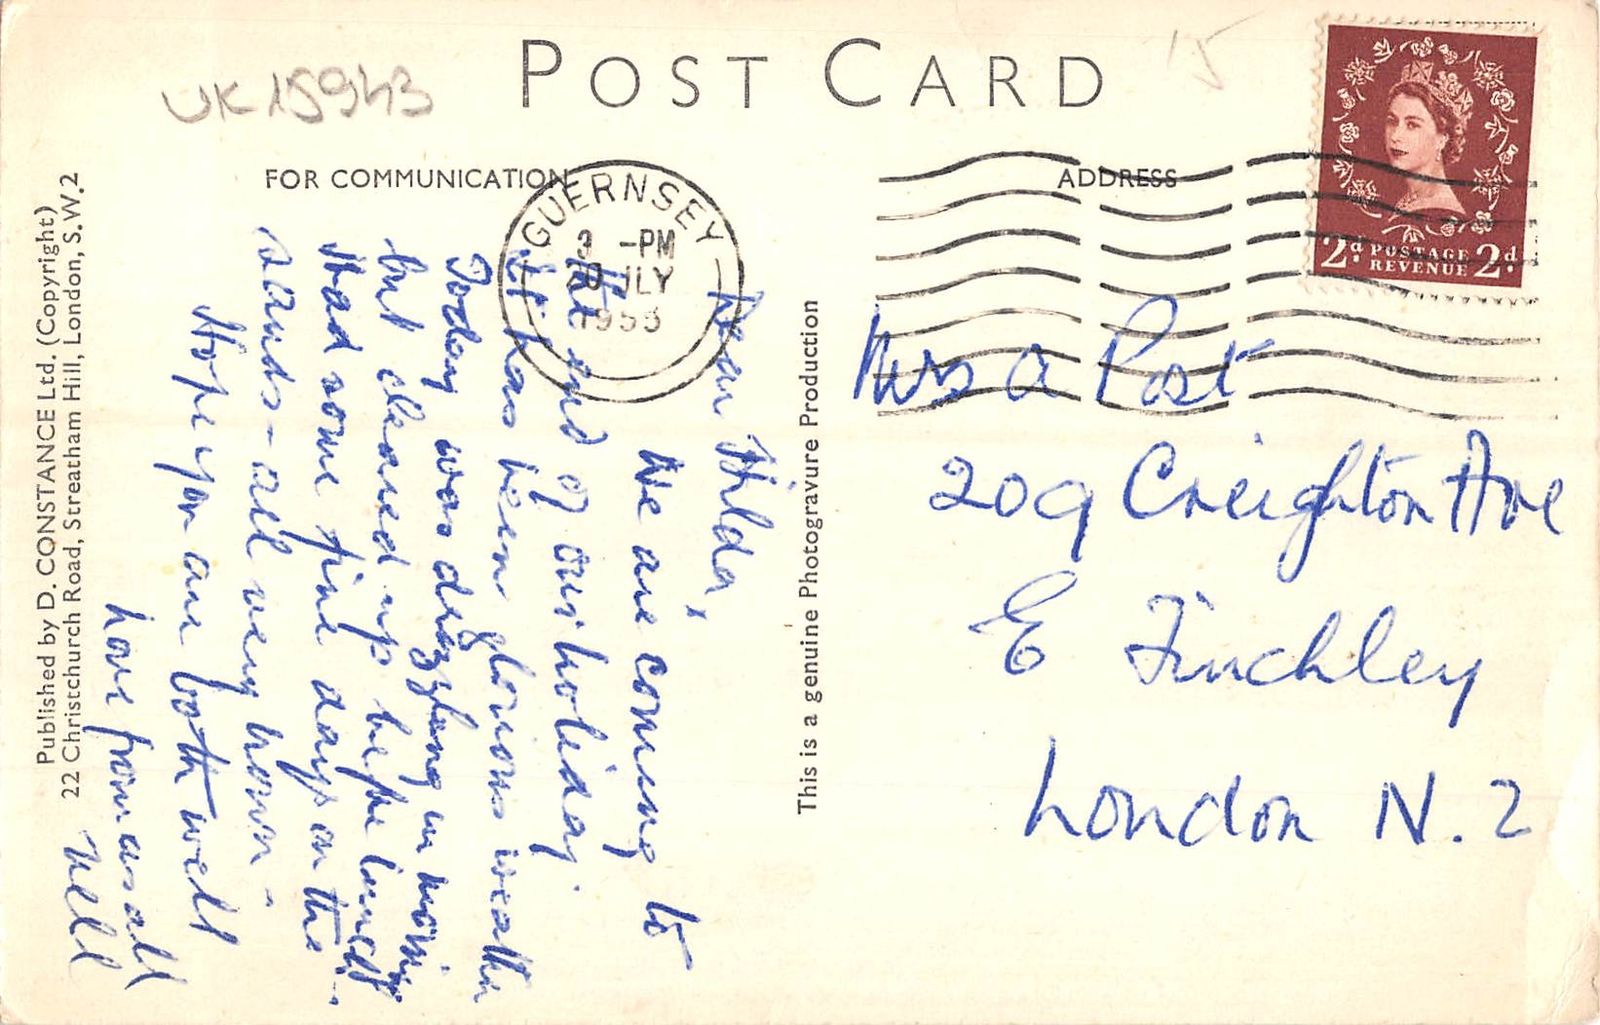 UK15943
POST CARD
15
FOR COMMUNICATION
ADDRESS
GUERNSEY
3 -PM
JLY
195
2D POSTAGE REVENUE 2D
Published by D. CONSTANCE Ltd. (Copyright)
22 Christchurch Road, Streatham Hill, London, S.W.2
This is a genuine Photogravure Production
Dear Hilda,
We are coming to
the end of our holiday.
It has been glorious weather
Today was drizzling in morning
but cleared up before lunch.
Had some fine days on the
sands - all very brown -
Hope you are both well
Love from us all
Nell
Mrs A Post
209 Creighton Ave
E Finchley
London N.2